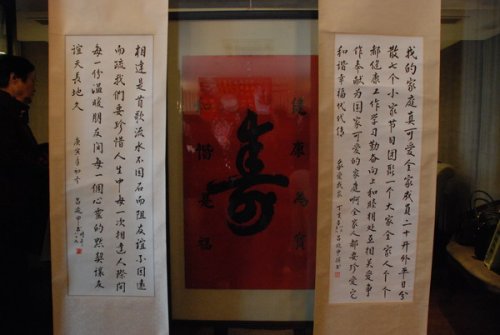 我的家庭真可爱全家成员二十开外平日分
散七个小家节日团聚一个大家全家人个个
都健康工作学习勤奋向上和睦相处互相关爱事
作奉献为国家可爱的家庭啊全家人都要珍爱它
和谐幸福代代传
健康為寶
壽
是福
相逢是首歌流水不因石而阻友谊不因远
而疏我们要珍惜人生中每一次相逢人际间
每一份温暖朋友间每一个心灵的默契讓友
谊天長地久
庚寅年初冬